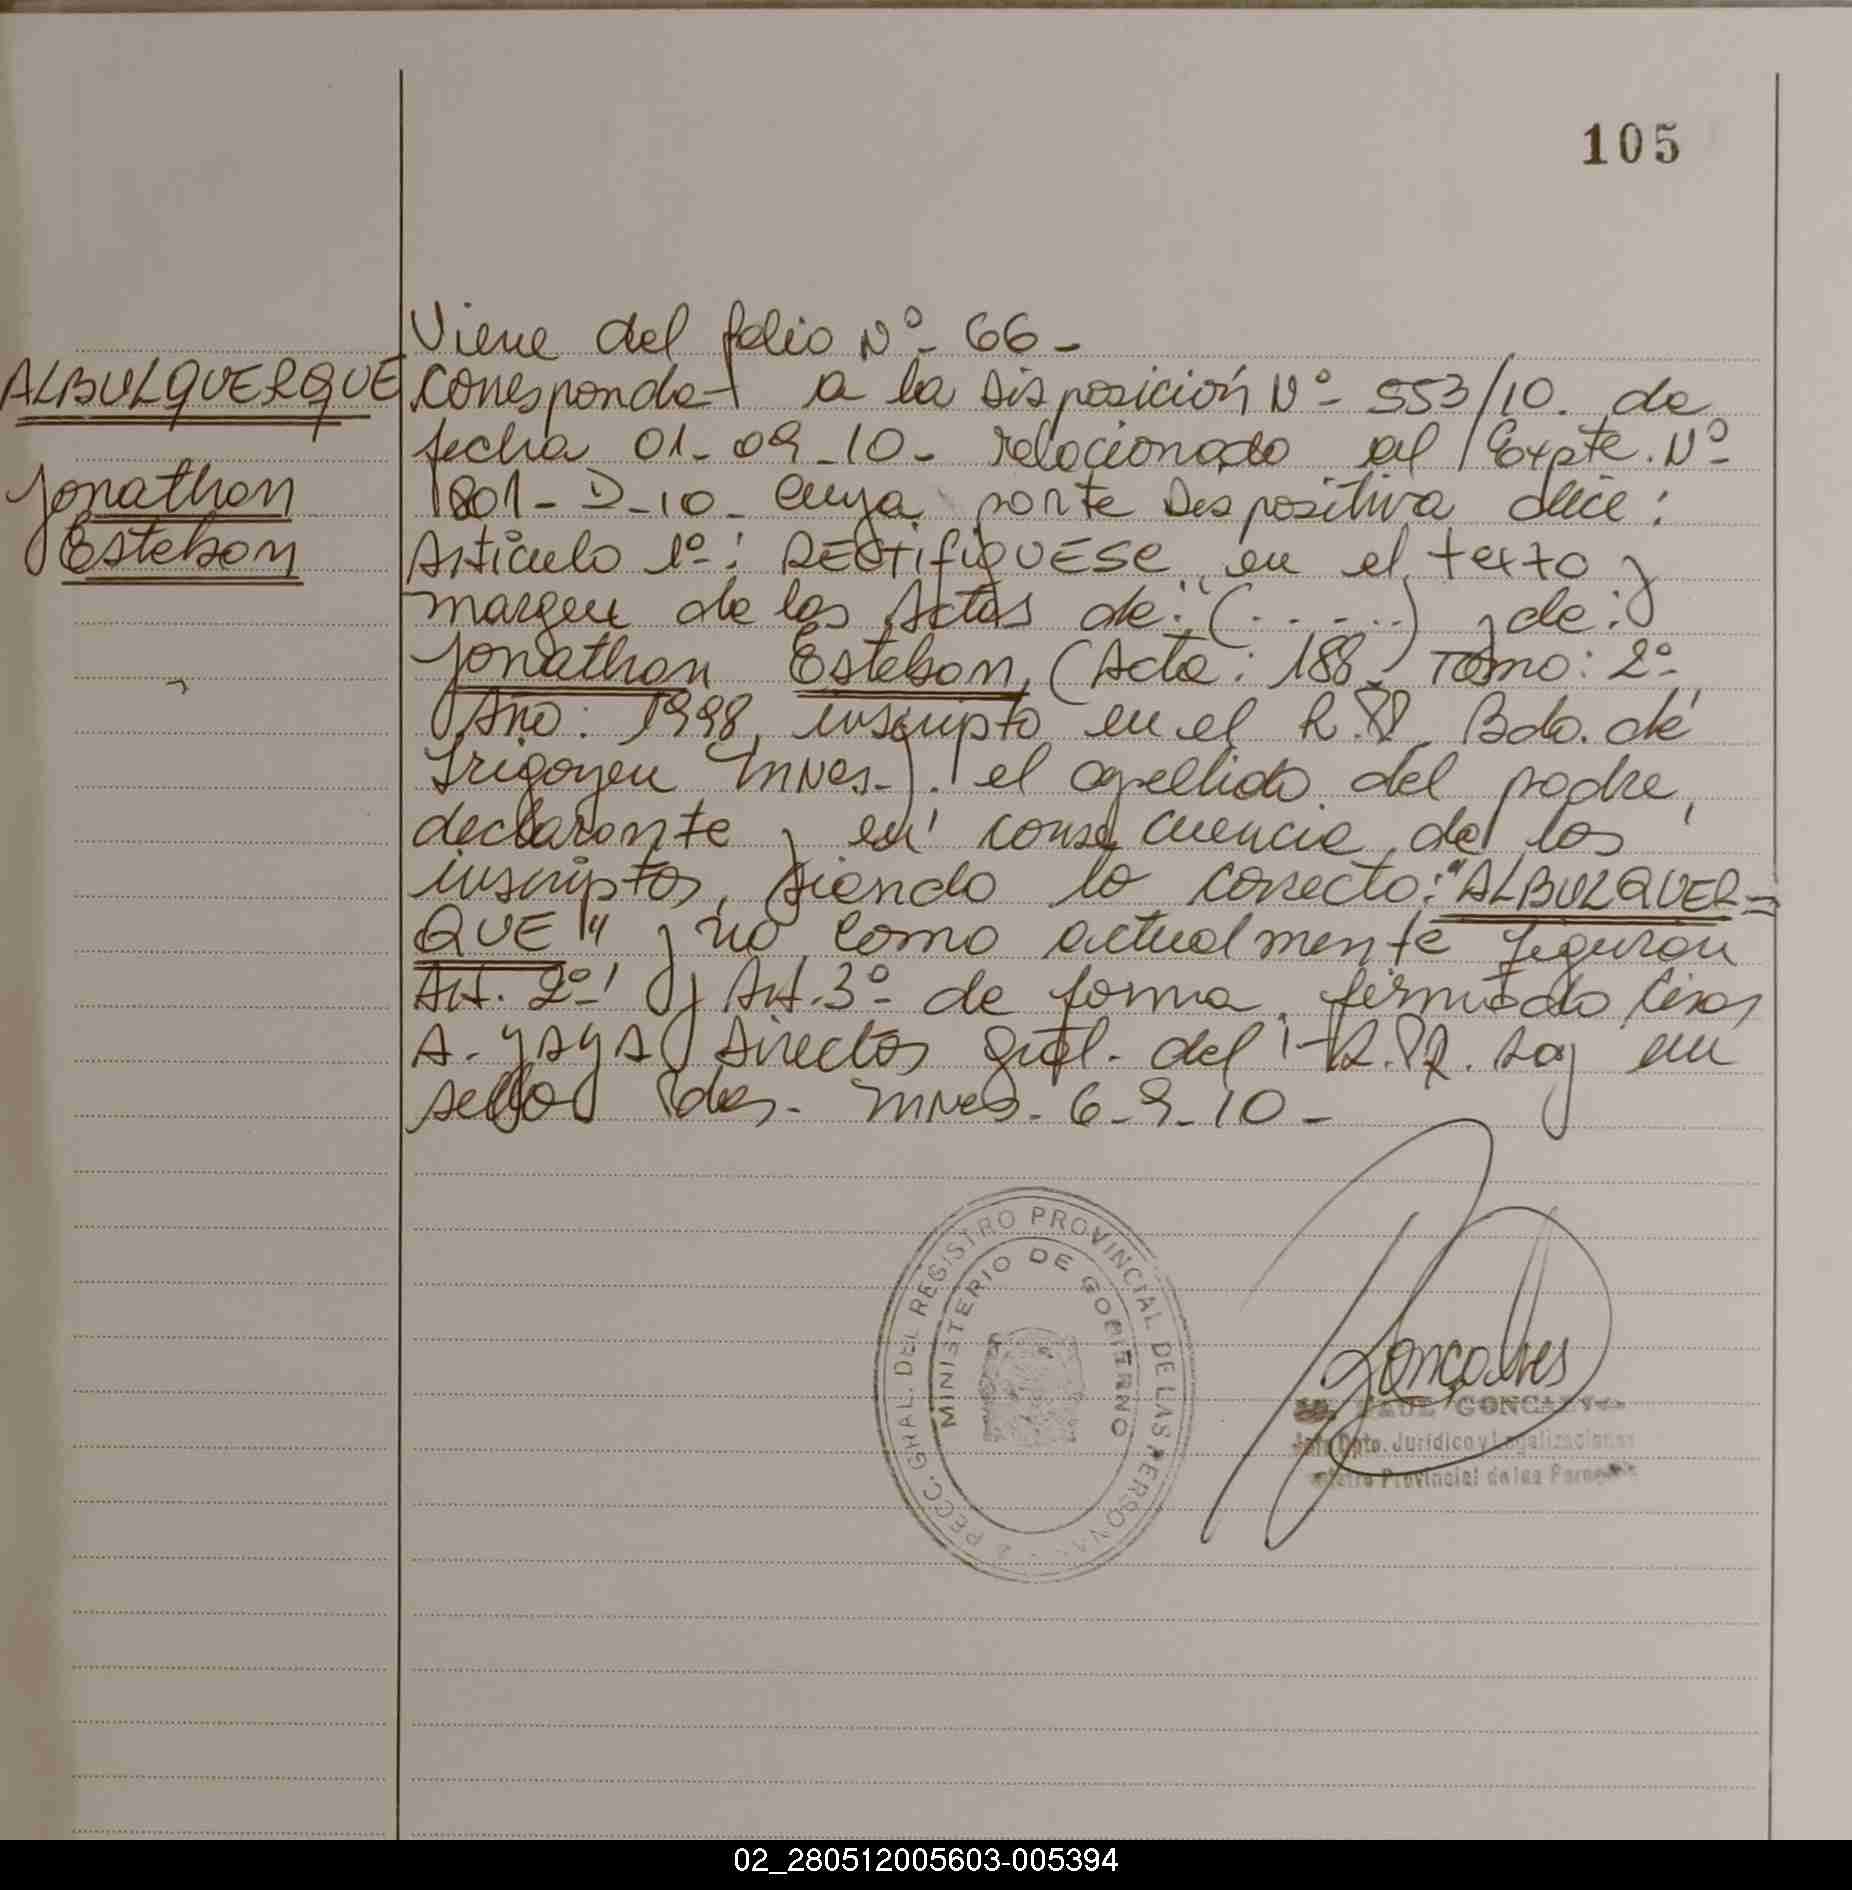 105
Viene del folio Nº- 66-
ALBULQUERQUE
Jonathan
Esteban
Corresponde- a la Disposición Nº- 553/10. de
fecha 01-09-10- relacionado al Expte. Nº-
1801-D-10- cuya parte Dispositiva dice:
Artículo 1º-: RECTIFIQUESE en el texto y
margen de las Actas de: (......) y de:
Jonathan Esteban, (Acta: 188- Tomo: 2º-
Año: 1998, inscripto en el R.P.P. Bdo. de
Irigoyen Mnes-). el apellido del padre,
declarante y en consecuencia de los
inscriptos, siendo lo correcto: "ALBULQUER=
QUE" y no como actualmente figuran
Art. 2º- y Art. 3º- de forma, firmado
A. YAYA Director Gral. del R.P.P. hay un
sello Pdas. Mnes- 6-9-10-
DIRECC. GRAL. DEL REGISTRO PROVINCIAL DE LAS PERSONAS
MINISTERIO DE GOBIERNO
Gonçalves
RAUL GONCALVES
Jefe Dpto. Jurídico y Legalizaciones
Registro Provincial de las Personas
02_280512005603-005394